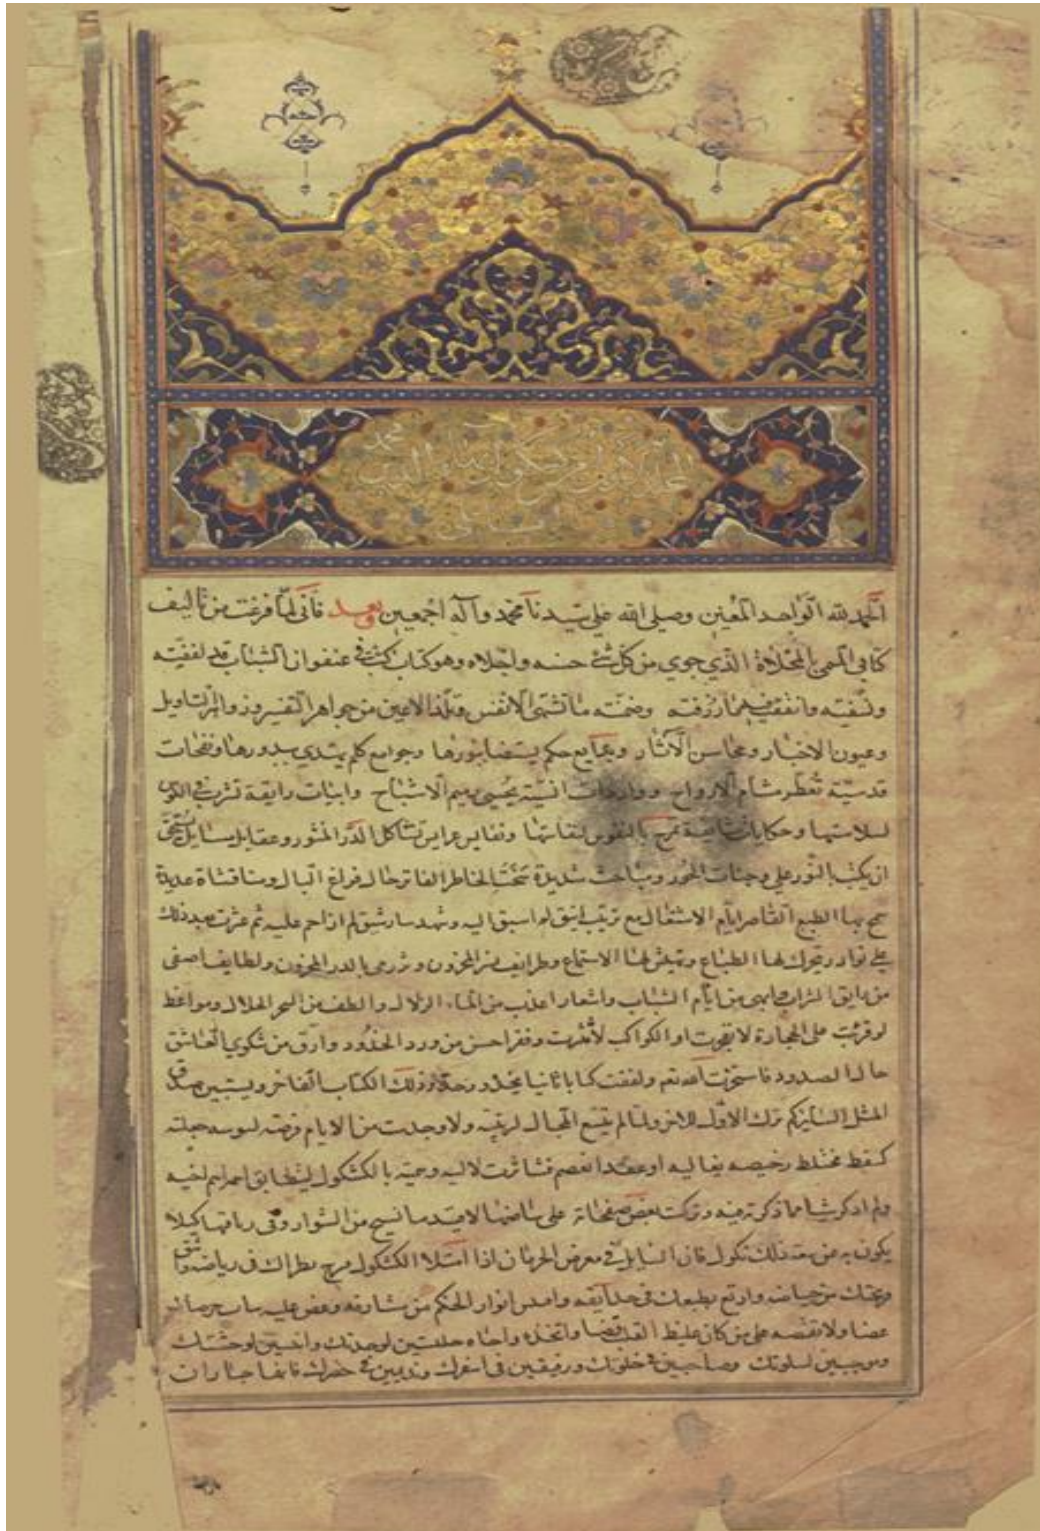 الحمد لله الواحد المعين وصلى الله على سيدنا محمد وآله اجمعين وبعد فاني لما فرغت من تأليف
كتابي المسمى بالمخلاة الذي حوى من كل شئ حسنه واحلاه وهو كتاب كتبته في عنفوان الشباب قد لفقته
ونسقته وانفقت فيه ما رزقته وضمنته ما تشتهي الانفس وتلذ الاعين من جواهر التفسير وزواهر التاويل
وعيون الاخبار ومحاسن الآثار وبدايع حكم يستضا بنورها وجوامع كلم يهتدي ببدورها ونفحات
قدسية تعطر مشام الارواح وواردات انسية تحيي رميم الاشباح وابيات رايقة تشرب في الكؤس
لسلاستها وحكايات شايقة تمزج بالنفوس لنفاستها ونفايس عرايس تشاكل الدر المنثور وعقايل مسايل تستحق
ان تكتب بالنور على وجنات الحور ومباحث سديدة سنحت للخاطر الفاتر حال فراغ البال ومناقشاة عديدة
سمح بها الطبع القاصر ايام الاشتغال مع ترتيب انيق لم اسبق اليه وتمهيد رشيق لم ازاحم عليه ثم عثرت بعد ذلك
على نوادر تتحرك لها الطباع وتهش لها الاسماع وطرايف تسر المحزون وتزري بالدر المخزون ولطايف اصفى
من رايق الشراب وابهى من ايام الشباب واشعار اعذب من الماء الزلال والطف من السحر الحلال ومواعظ
لو قرئت على الحجارة لانفجرت او الكواكب لانتثرت وفقر احسن من ورد الخدود وارق من شكوى العاشق
حال الصدود فاستخرت الله تعم ولفقت كتابا ثانيا يحذو حذو ذلك الكتاب الفاخر ويستبين به صدق
المثل الساير كم ترك الاول للاخر ولما لم يتسع المجال لترتيبه ولا وجدت من الايام فرصة لتبويبه جعلته
كسفط مختلط رخيصه بغاليه او عقد انفصم فتناثرت لاليه وسميته بالكشكول ليطابق اسمه اسم اخيه
ولم اذكر شيا مما ذكرته فيه وتركت بعض صفحاته على بياضها لاقيد ما يسنح من الشوارد في رياضها كيلا
يكون به عن سمة ذلك نكول فان السايل في معرض الحرمان اذا امتلا الكشكول فسرح نظرك في رياضه واسق
قريحتك من حياضه وارتع بطبعك في حدايقه واقتبس انوار الحكم من مشارقه وعض عليه بناب حرصك
عضا ولا تفضه على من كان غليظ القلب فضا واتخذه واخاه جليسين لوحدتك وانيسين لوحشتك
وموجبين لسلوتك وصاحبين في خلوتك ورفيقين في اسفارك ونديمين في حضرك فانهما جاران